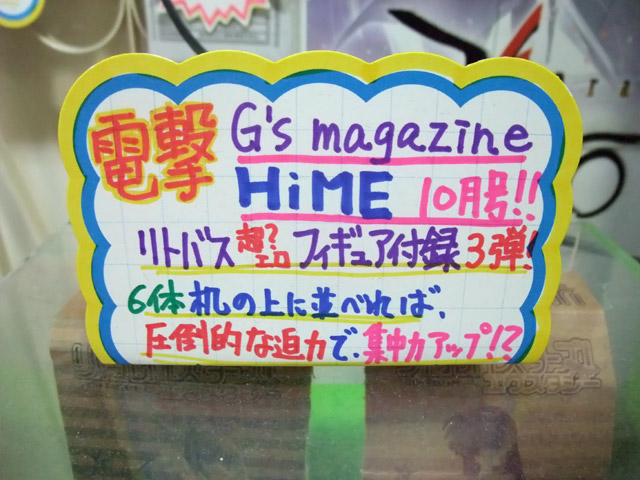 電撃 G's magazine
HiME 10月号!!
リトバス 超?エロ フィギュア付録 3弾!
6体 机の上に並べれば、
圧倒的な迫力で、集中力アップ!?